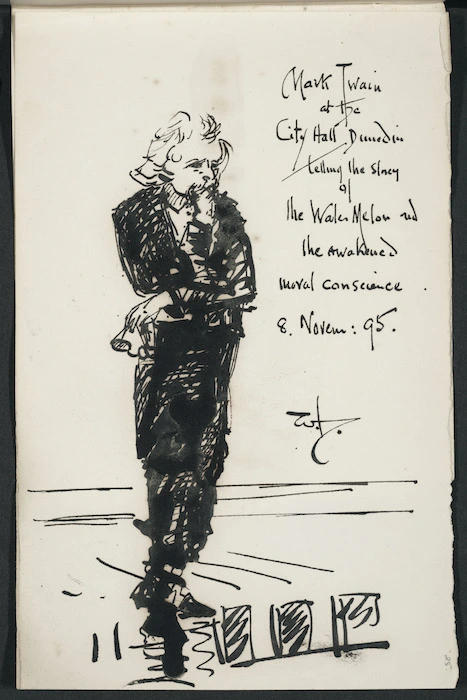 Mark Twain
at the
City Hall Dunedin
telling the story
of
the Water Melon and
the awakened
moral conscience
8. Novem: 95.